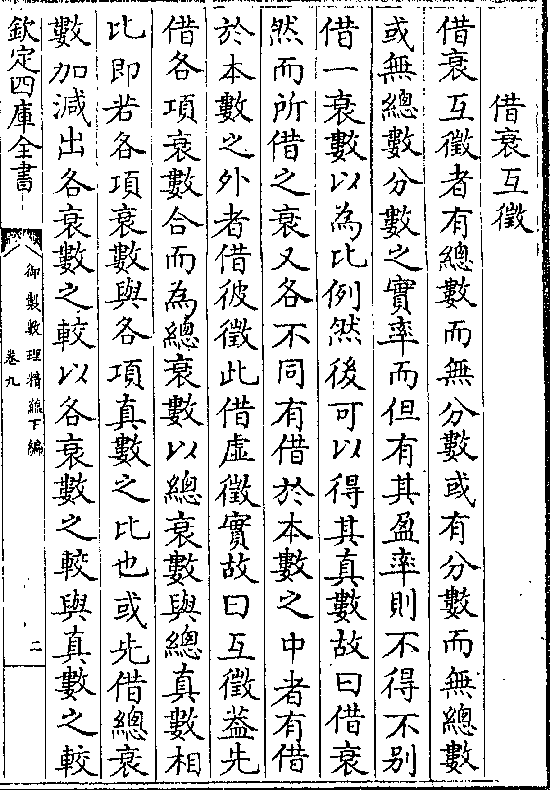 借衰互徵
借衰互徵者有總數而無分數或有分數而無總數
或無總數分數之實率而但有其盈率則不得不別
借一衰數以為比例然後可以得其真數故曰借衰
然而所借之衰又各不同有借於本數之中者有借
於本數之外者借彼徵此借虛徵實故曰互徵葢先
借各項衰數合而為總衰數以總衰數與總真數相
比即若各項衰數與各項真數之比也或先借總衰
數加減出各衰數之較以各衰數之較與真數之較
欽定四庫全書
御製數理精緼下編
卷九
二